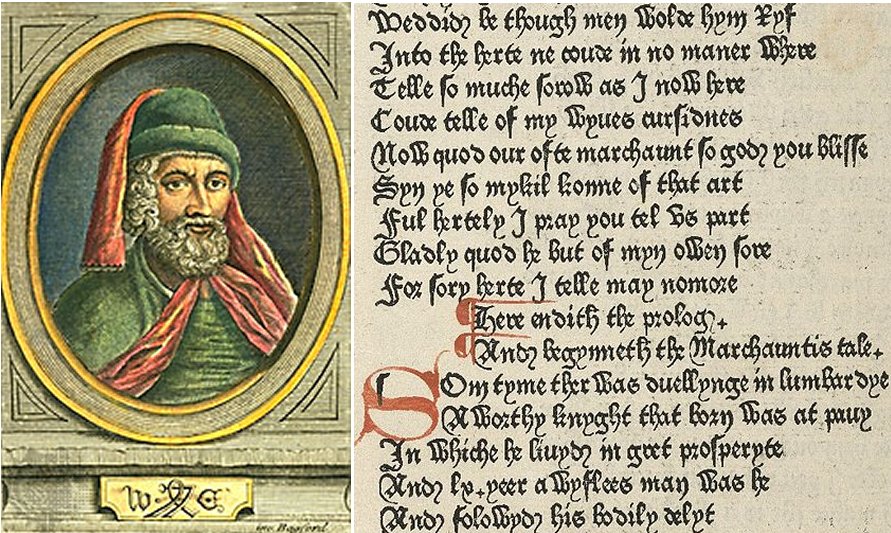 W C
inv. Bagford
Weddid be though men wolde hym Ryf
Into the herte ne coude in no maner where
Telle so muche sorow as I now here
Coude telle of my wyues cursidnes
Now quod our oste marchaunt so god you blisse
Syn ye so mykil konne of that art
Ful hertely I pray you tel vs part
Gladly quod he but of myn owen sore
For sory herte I telle may nomore
¶ Here endith the prolog.
¶ And begynneth the Marchauntis tale.
SOm tyme ther was duellynge in lumbardye
A worthy knyght that born was at pauy
In whiche he liuyd in gret prosperyte
And lx. yeer a wyflees man was he
And folowyd his bodily delyt